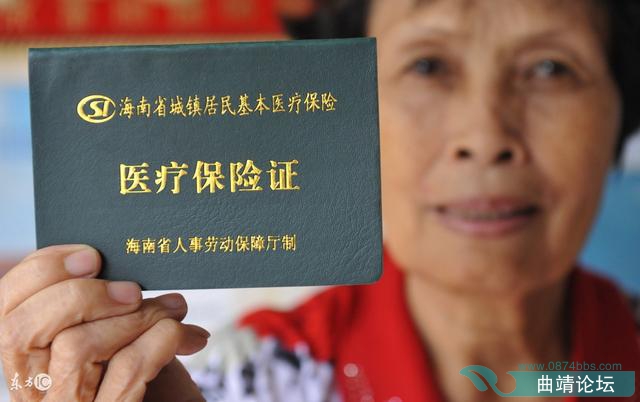 SI 海南省城镇居民基本医疗保险
医疗保险证
海南省人事劳动保障厅制
东方IC
www.0874bbs.com
曲靖论坛